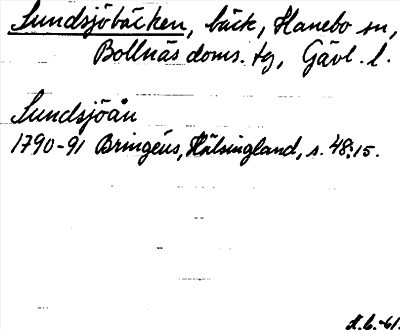 Sundsjöbäcken, bäck, Hanebo sn,
Bollnäs doms. tg, Gävl. l.
Sundsjöån
1790-91 Bringéus, Hälsingland, s. 48:15.